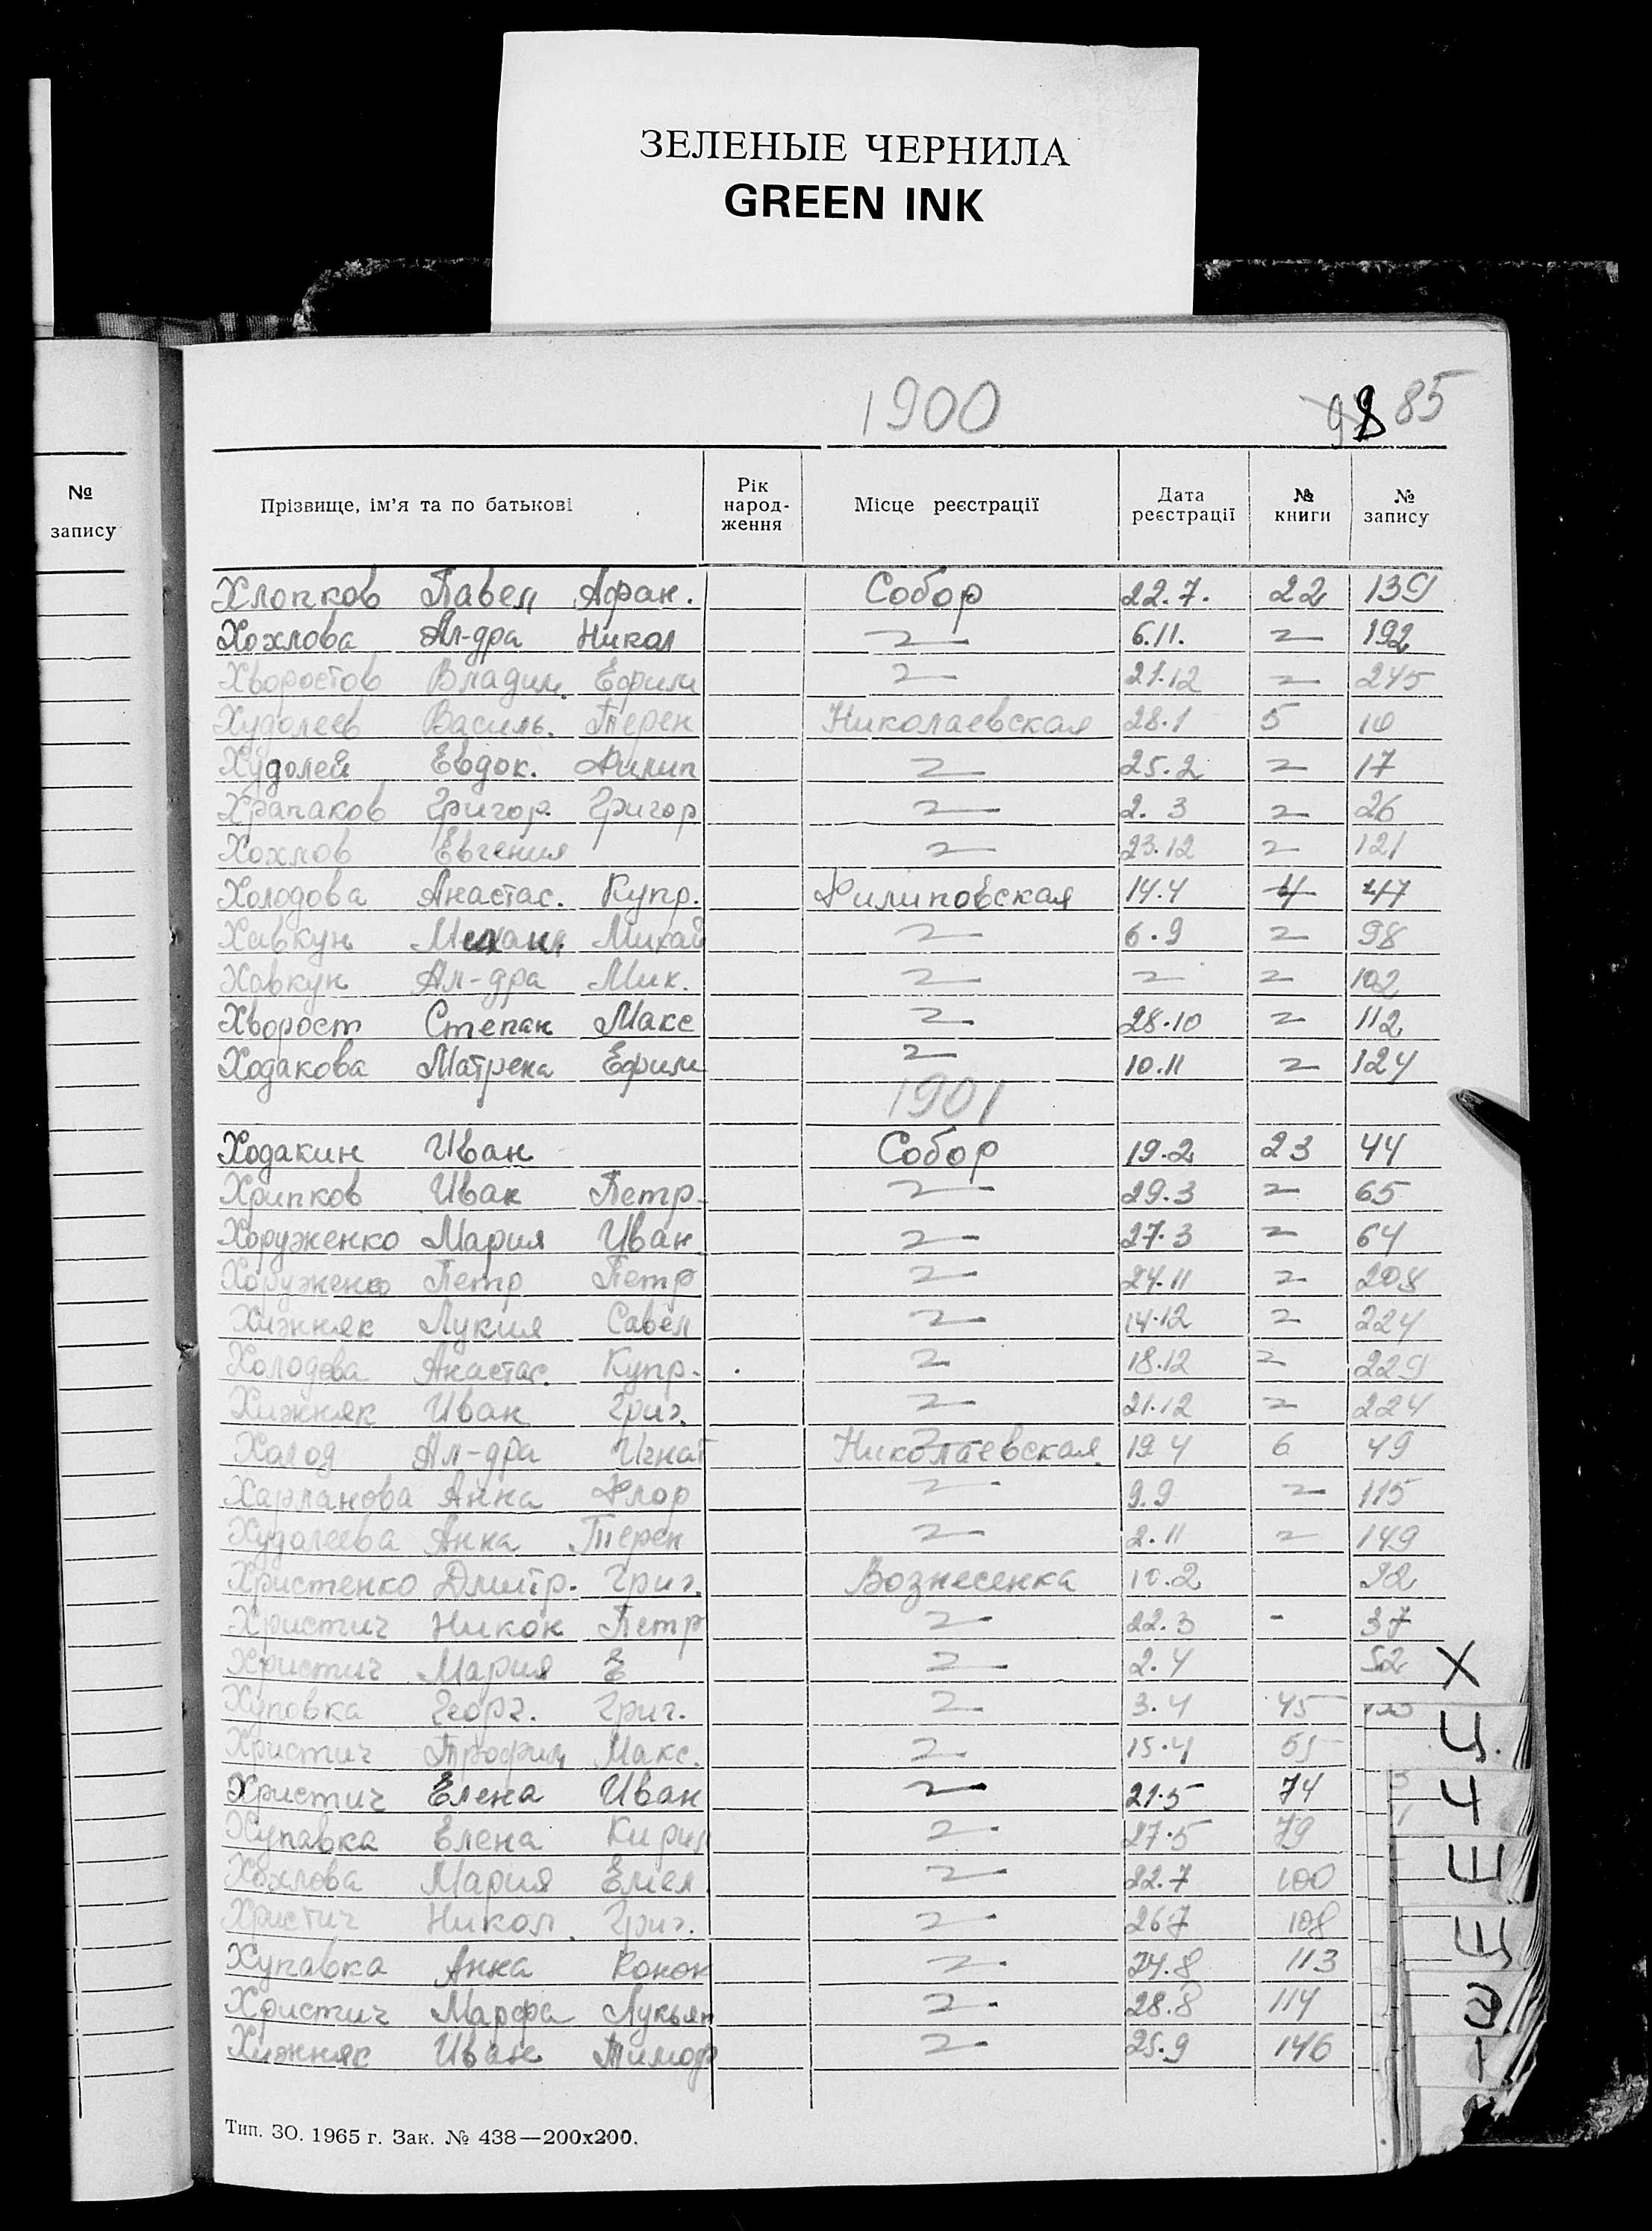 ЗЕЛЕНЫЕ ЧЕРНИЛА
GREEN INK
1900 98 85
№ запису
Прізвище, ім'я та по батькові Рік народ-ження Місце реєстрації Дата реєстрації № книги № запису
Хлопков Павел Афан. Собор 22.7. 22 139
Хохлова Ал-дра Никол 〃 6.11. 〃 192
Хворостов Владим. Ефим 〃 21.12 〃 245
Худолеев Василь. Терен Николаевская 28.1 5 10
Худолей Евдок. Филип 〃 25.2 〃 17
Храпаков Григор. Григор 〃 2.3 〃 26
Хохлов Евгения 〃 23.12 〃 121
Холодова Анастас. Купр. Филиповская 14.4 4 47
Хавкун Михай 〃 6.9 〃 98
Хавкун Ал-дра Мих. 〃 〃 〃 102
Хворост Степан Макс 〃 28.10 〃 112
Ходакова Матрена Ефим 〃 10.11 〃 124
1901
Ходакин Иван Собор 19.2 23 44
Хрипков Иван Петр. 〃 29.3 〃 65
Хоруженко Мария Иван 〃 27.3 〃 64
Хоруженко Петр Петр 〃 24.11 〃 208
Хижняк Лукия Савел 〃 14.12 〃 224
Холодова Анастас. Купр. 〃 18.12 〃 229
Хижняк Иван Григ. 〃 21.12 〃 224
Холод Ал-дра Игнат Николаевская 19.4 6 49
Харланова Анна Флор 〃 9.9 〃 115
Худолеева Анна Терен 〃 2.11 〃 149
Христенко Дмитр. Григ. Вознесенка 10.2 22
Христич Никон Петр 〃 22.3 - 37
Христич Мария Е 〃 2.4 52
Хуповка Георг. Григ. 〃 3.4 45
Христич Трофим Макс. 〃 15.4 55
Христич Елена Иван 〃 21.5 74
Хупавка Елена Кирил 〃 27.5 79
Хохлова Мария Емел 〃 22.7 100
Христич Никол. Григ. 〃 26.7 108
Хупавка Анна Конон 〃 24.8 113
Христич Марфа Лукьян 〃 28.8 114
Хижняк Иван Тимоф 〃 25.9 146
Х
Ц
Ч
Ш
Щ
Э
Тип. ЗО. 1965 г. Зак. № 438—200х200.